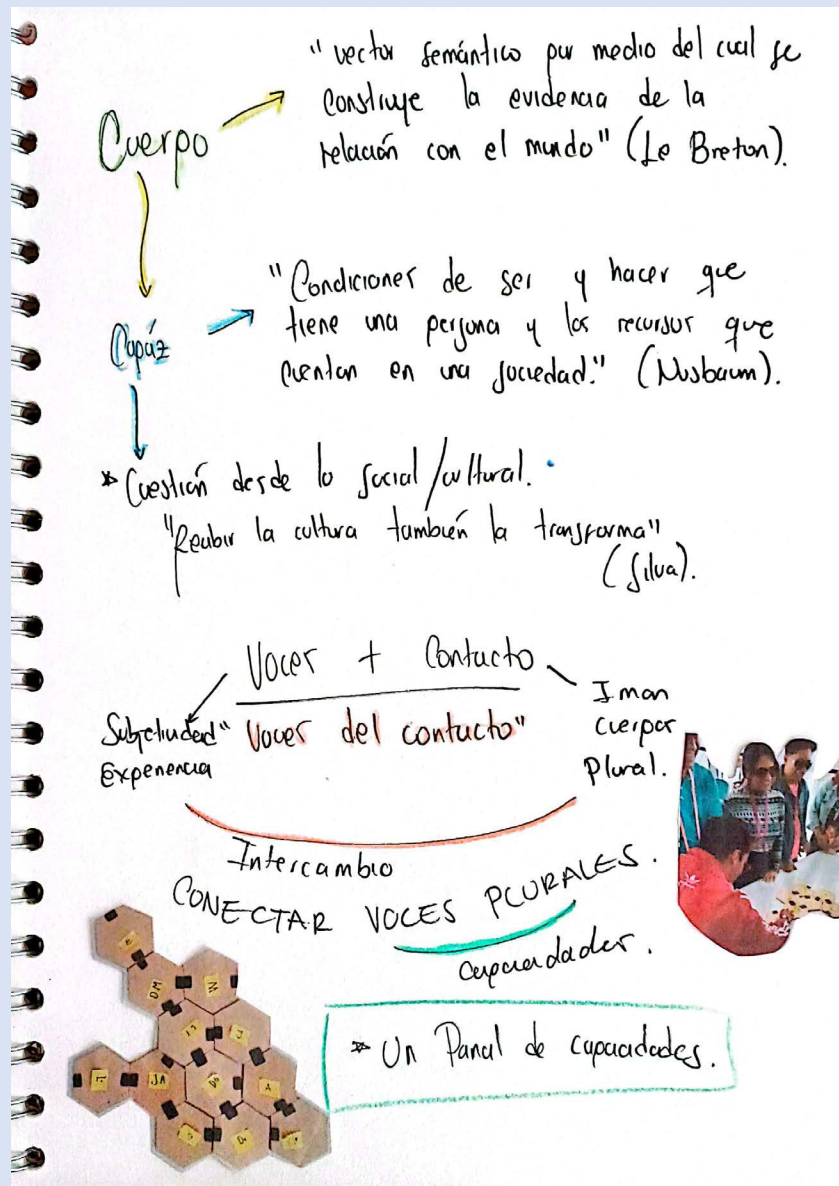 "vector semántico por medio del cual se
construye la evidencia de la
relación con el mundo" (Le Breton).
Cuerpo
"Condiciones de ser y hacer que
tiene una persona y los recursos que
cuentan en una sociedad." (Nusbaum).
Capáz
* Cuestión desde lo social/cultural.
"Recibir la cultura también la transforma"
(Silva).
Voces + Contacto
Subjetividad
Experiencia
"Voces del contacto"
Iman
Cuerpos
Plural.
Intercambio
CONECTAR VOCES PLURALES.
Capacidades.
* Un Panal de capacidades.
DM
JA
A